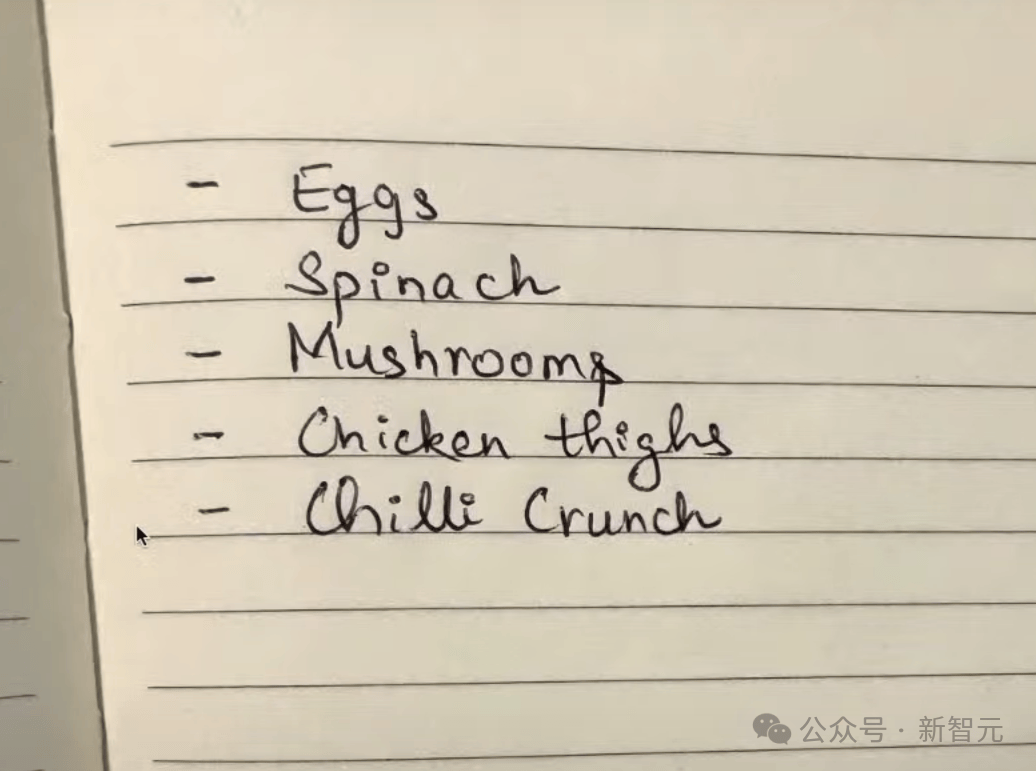 - Eggs
- Spinach
- Mushrooms
- Chicken thighs
- Chilli Crunch
公众号 · 新智元